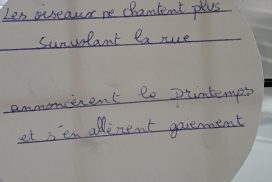 Les oiseaux ne chantent plus
Survolant la rue
annoncèrent le printemps
et s'en allèrent gaiement